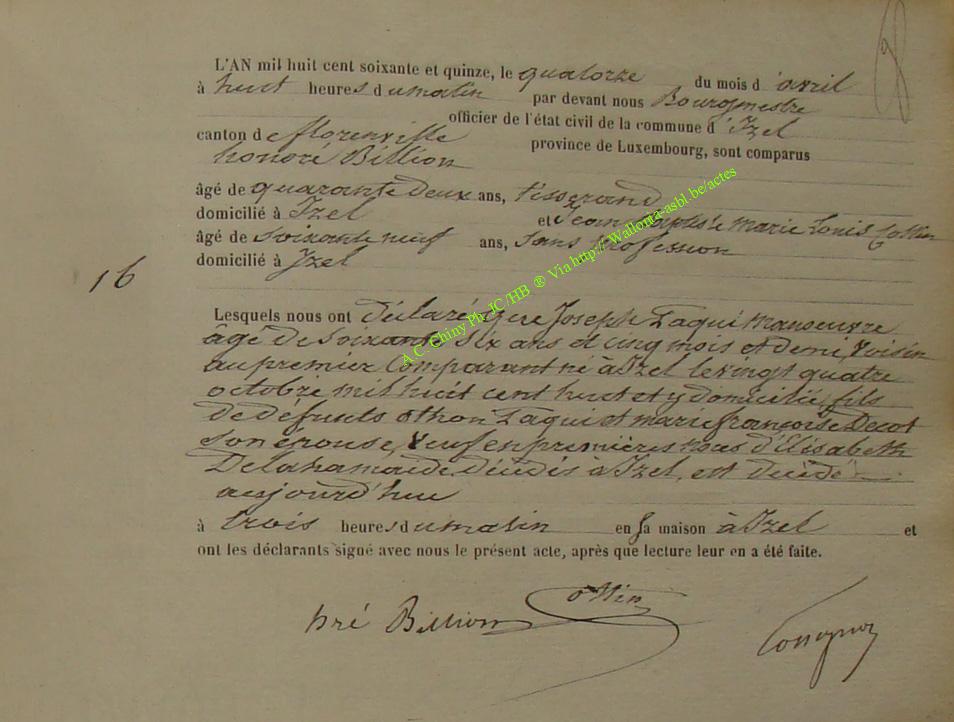 L'AN mil huit cent soixante et quinze, le quatorze du mois d'avril
à huit heures du matin par devant nous Bourgmestre
officier de l'état civil de la commune d'Izel
canton de florenville province de Luxembourg, sont comparus
honoré Billion
âgé de quarante deux ans, tisserand
domicilié à Izel et Jean Baptiste Marie Louis Collin
âgé de soixante neuf ans, sans profession
domicilié à Izel
16
Lesquels nous ont déclaré que Joseph Laqui Manoeuvre
âgé de soixante six ans et cinq mois et demi, voisin
au premier Comparant né à Izel le vingt quatre
octobre mil huit cent huit et y domicilié, fils
de defunts othon Laqui et marie françoise Decot
son épouse, veuf en premières noces d'Elisabeth
Delahamaide décédés à Izel, est décédé
aujourd'hui
à trois heures du matin en sa maison à Izel et
ont les déclarants signé avec nous le présent acte, après que lecture leur en a été faite.
hré Billion
A.C. Chiny Ph.JC/HB ® Via http://Wallonia-asbl.be/actes